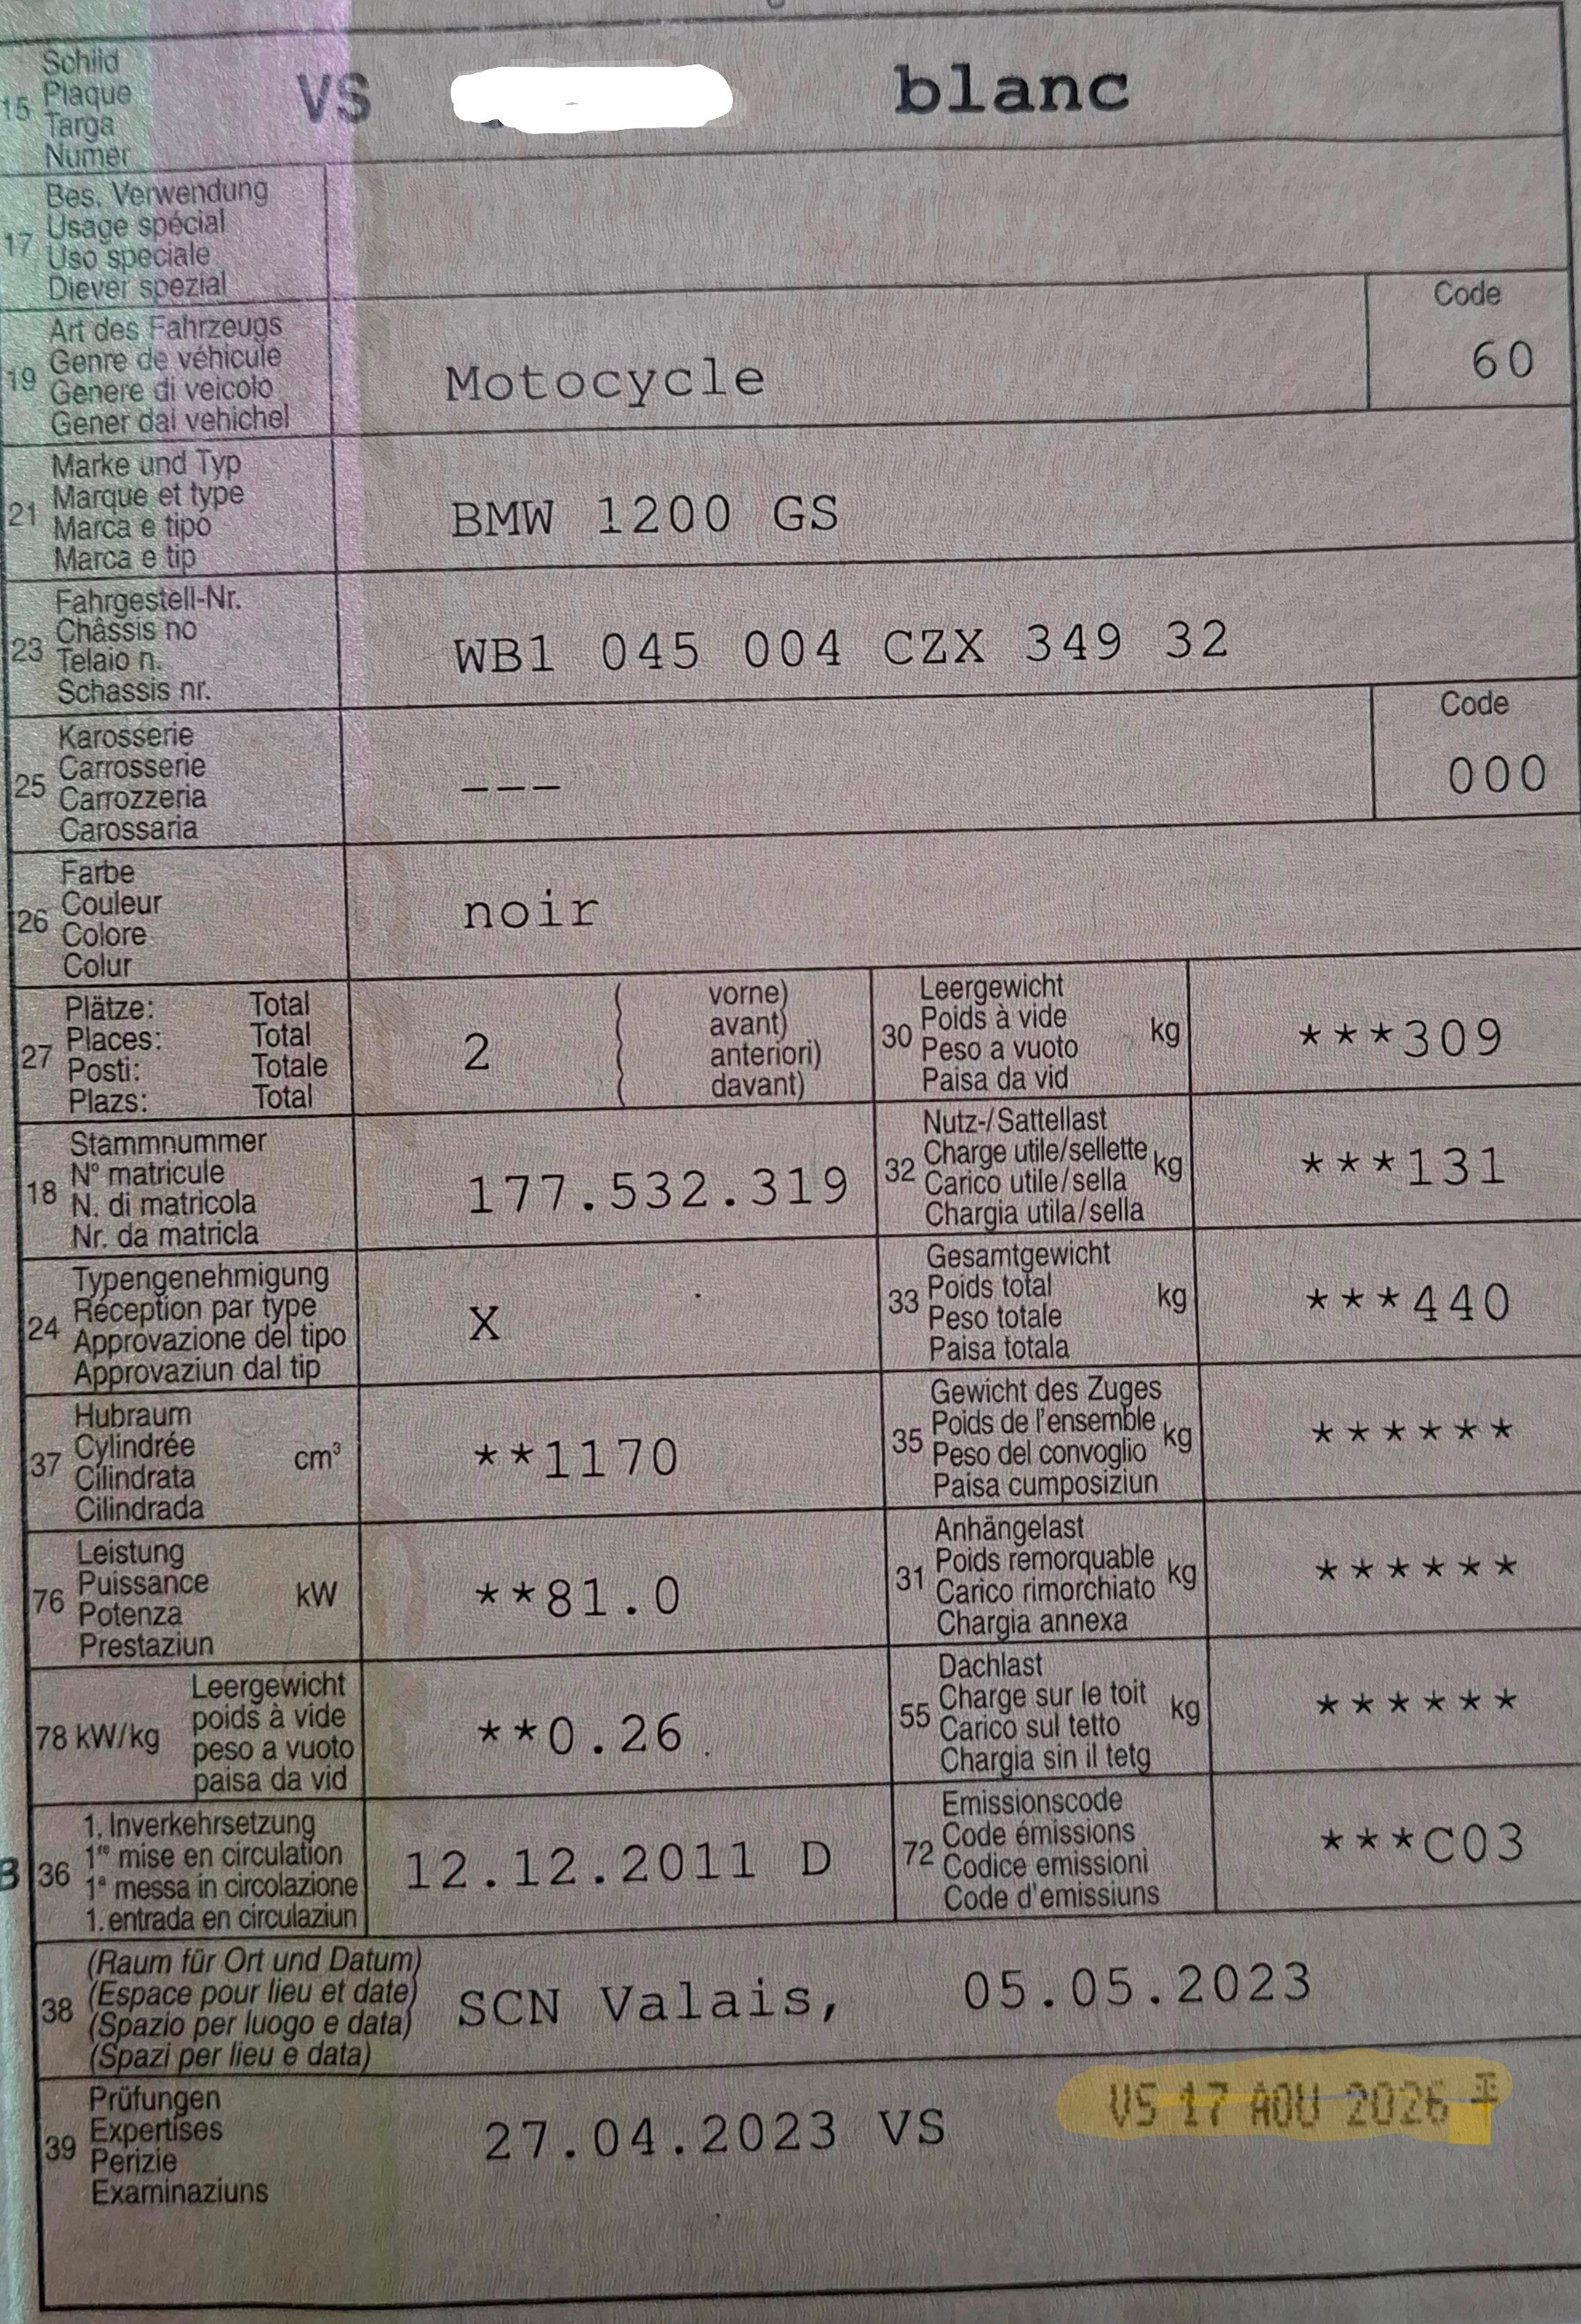 15 Schild
Plaque
Targa
Numer
VS blanc
17 Bes. Verwendung
Usage spécial
Uso speciale
Diever spezial
19 Art des Fahrzeugs
Genre de véhicule
Genere di veicolo
Gener dal vehichel
Motocycle
Code
60
21 Marke und Typ
Marque et type
Marca e tipo
Marca e tip
BMW 1200 GS
23 Fahrgestell-Nr.
Châssis no
Telaio n.
Schassis nr.
WB1 045 004 CZX 349 32
25 Karosserie
Carrosserie
Carrozzeria
Carossaria
---
Code
000
26 Farbe
Couleur
Colore
Colur
noir
27 Plätze: Total
Places: Total
Posti: Totale
Plazs: Total
2
( vorne)
( avant)
( anteriori)
( davant)
30 Leergewicht
Poids à vide
Peso a vuoto
Paisa da vid
kg
***309
18 Stammnummer
N° matricule
N. di matricola
Nr. da matricla
177.532.319
32 Nutz-/Sattellast
Charge utile/sellette
Carico utile/sella
Chargia utila/sella
kg
***131
24 Typengenehmigung
Réception par type
Approvazione del tipo
Approvaziun dal tip
X
33 Gesamtgewicht
Poids total
Peso totale
Paisa totala
kg
***440
37 Hubraum
Cylindrée
Cilindrata
Cilindrada
cm³
**1170
35 Gewicht des Zuges
Poids de l'ensemble
Peso del convoglio
Paisa cumposiziun
kg
******
76 Leistung
Puissance
Potenza
Prestaziun
kW
**81.0
31 Anhängelast
Poids remorquable
Carico rimorchiato
Chargia annexa
kg
******
78 kW/kg
Leergewicht
poids à vide
peso a vuoto
paisa da vid
**0.26
55 Dachlast
Charge sur le toit
Carico sul tetto
Chargia sin il tetg
kg
******
B 36 1. Inverkehrsetzung
1re mise en circulation
1a messa in circolazione
1. entrada en circulaziun
12.12.2011 D
72 Emissionscode
Code émissions
Codice emissioni
Code d'emissiuns
***C03
38 (Raum für Ort und Datum)
(Espace pour lieu et date)
(Spazio per luogo e data)
(Spazi per lieu e data)
SCN Valais, 05.05.2023
39 Prüfungen
Expertises
Perizie
Examinaziuns
27.04.2023 VS
VS 17 AOU 2026